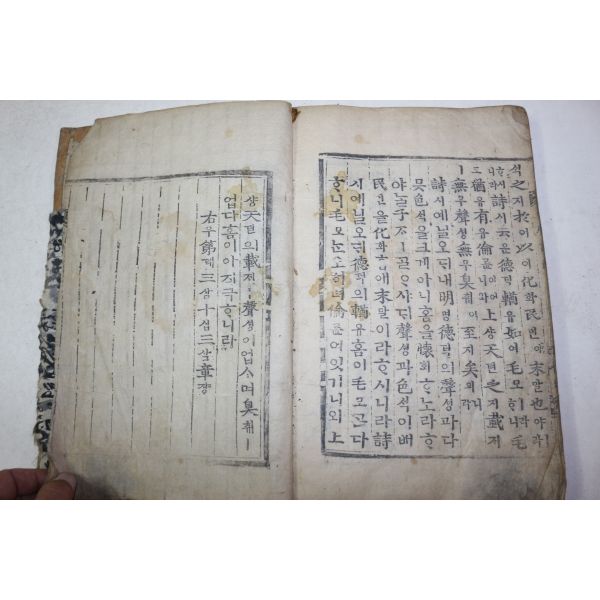 석之지於어以이化화民민애末말也야라
ᄒᆞ시詩시云운德덕輶유如여毛모ㅣ라ᄒᆞ니毛모
ㅣ猶유有유倫륜ᄒᆞ니와上샹天텬之지載ᄌᆡ
ㅣ無무聲셩無무臭ᄎᆔㅣ아至지矣의니라
詩시예닐오ᄃᆡ내明명德덕의聲셩과다
ᄆᆞᆺ色ᄉᆡᆨ을크게아니홈을懷회ᄒᆞ노라ᄒᆞ
야ᄂᆞᆯ子ᄌᆞㅣᄀᆞᆯᄋᆞ샤ᄃᆡ聲셩과色ᄉᆡᆨ이ᄡᅥ
民민을化화홈애末말이라ᄒᆞ시니라詩
시예닐오ᄃᆡ德덕의輶유홈이毛모ᄀᆞᆮ다
ᄒᆞ니毛모ᄂᆞᆫ오히려倫륜이잇거니와上
샹天텬의載ᄌᆡㅣ聲셩이업스며臭ᄎᆔㅣ
업다홈이아지극ᄒᆞ니라
右우第뎨三삼十십三삼章쟝